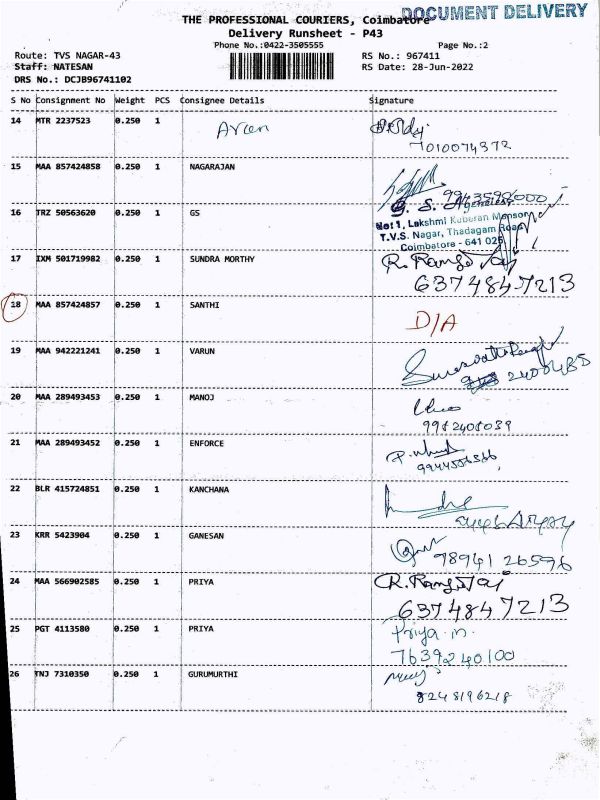 DOCUMENT DELIVERY
THE PROFESSIONAL COURIERS, Coimbatore
Delivery Runsheet - P43
Phone No.:0422-3505555
Page No.:2
Route: TVS NAGAR-43
RS No.: 967411
Staff: NATESAN
RS Date: 28-Jun-2022
DRS No.: DCJB96741102
S No Consignment No Weight PCS Consignee Details Signature
14 MTR 2237523 0.250 1
7010074372
15 MAA 857424858 0.250 1 NAGARAJAN
16 TRZ 50563620 0.250 1 GS
G. S. Agencies
No: 1, Lakshmi Kuberan Mansion
T.V.S. Nagar, Thadagam Road
Coimbatore - 641 025
17 IXM 501719982 0.250 1 SUNDRA MORTHY
6374847213
18 MAA 857424857 0.250 1 SANTHI
D/A
19 MAA 942221241 0.250 1 VARUN
2400485
20 MAA 289493453 0.250 1 MANOJ
21 MAA 289493452 0.250 1 ENFORCE
22 BLR 415724851 0.250 1 KANCHANA
23 KRR 5423904 0.250 1 GANESAN
98941 26596
24 MAA 566902585 0.250 1 PRIYA
6374847213
25 PGT 4113580 0.250 1 PRIYA
Priya.m.
7639240100
26 TNJ 7310350 0.250 1 GURUMURTHI
8248196218